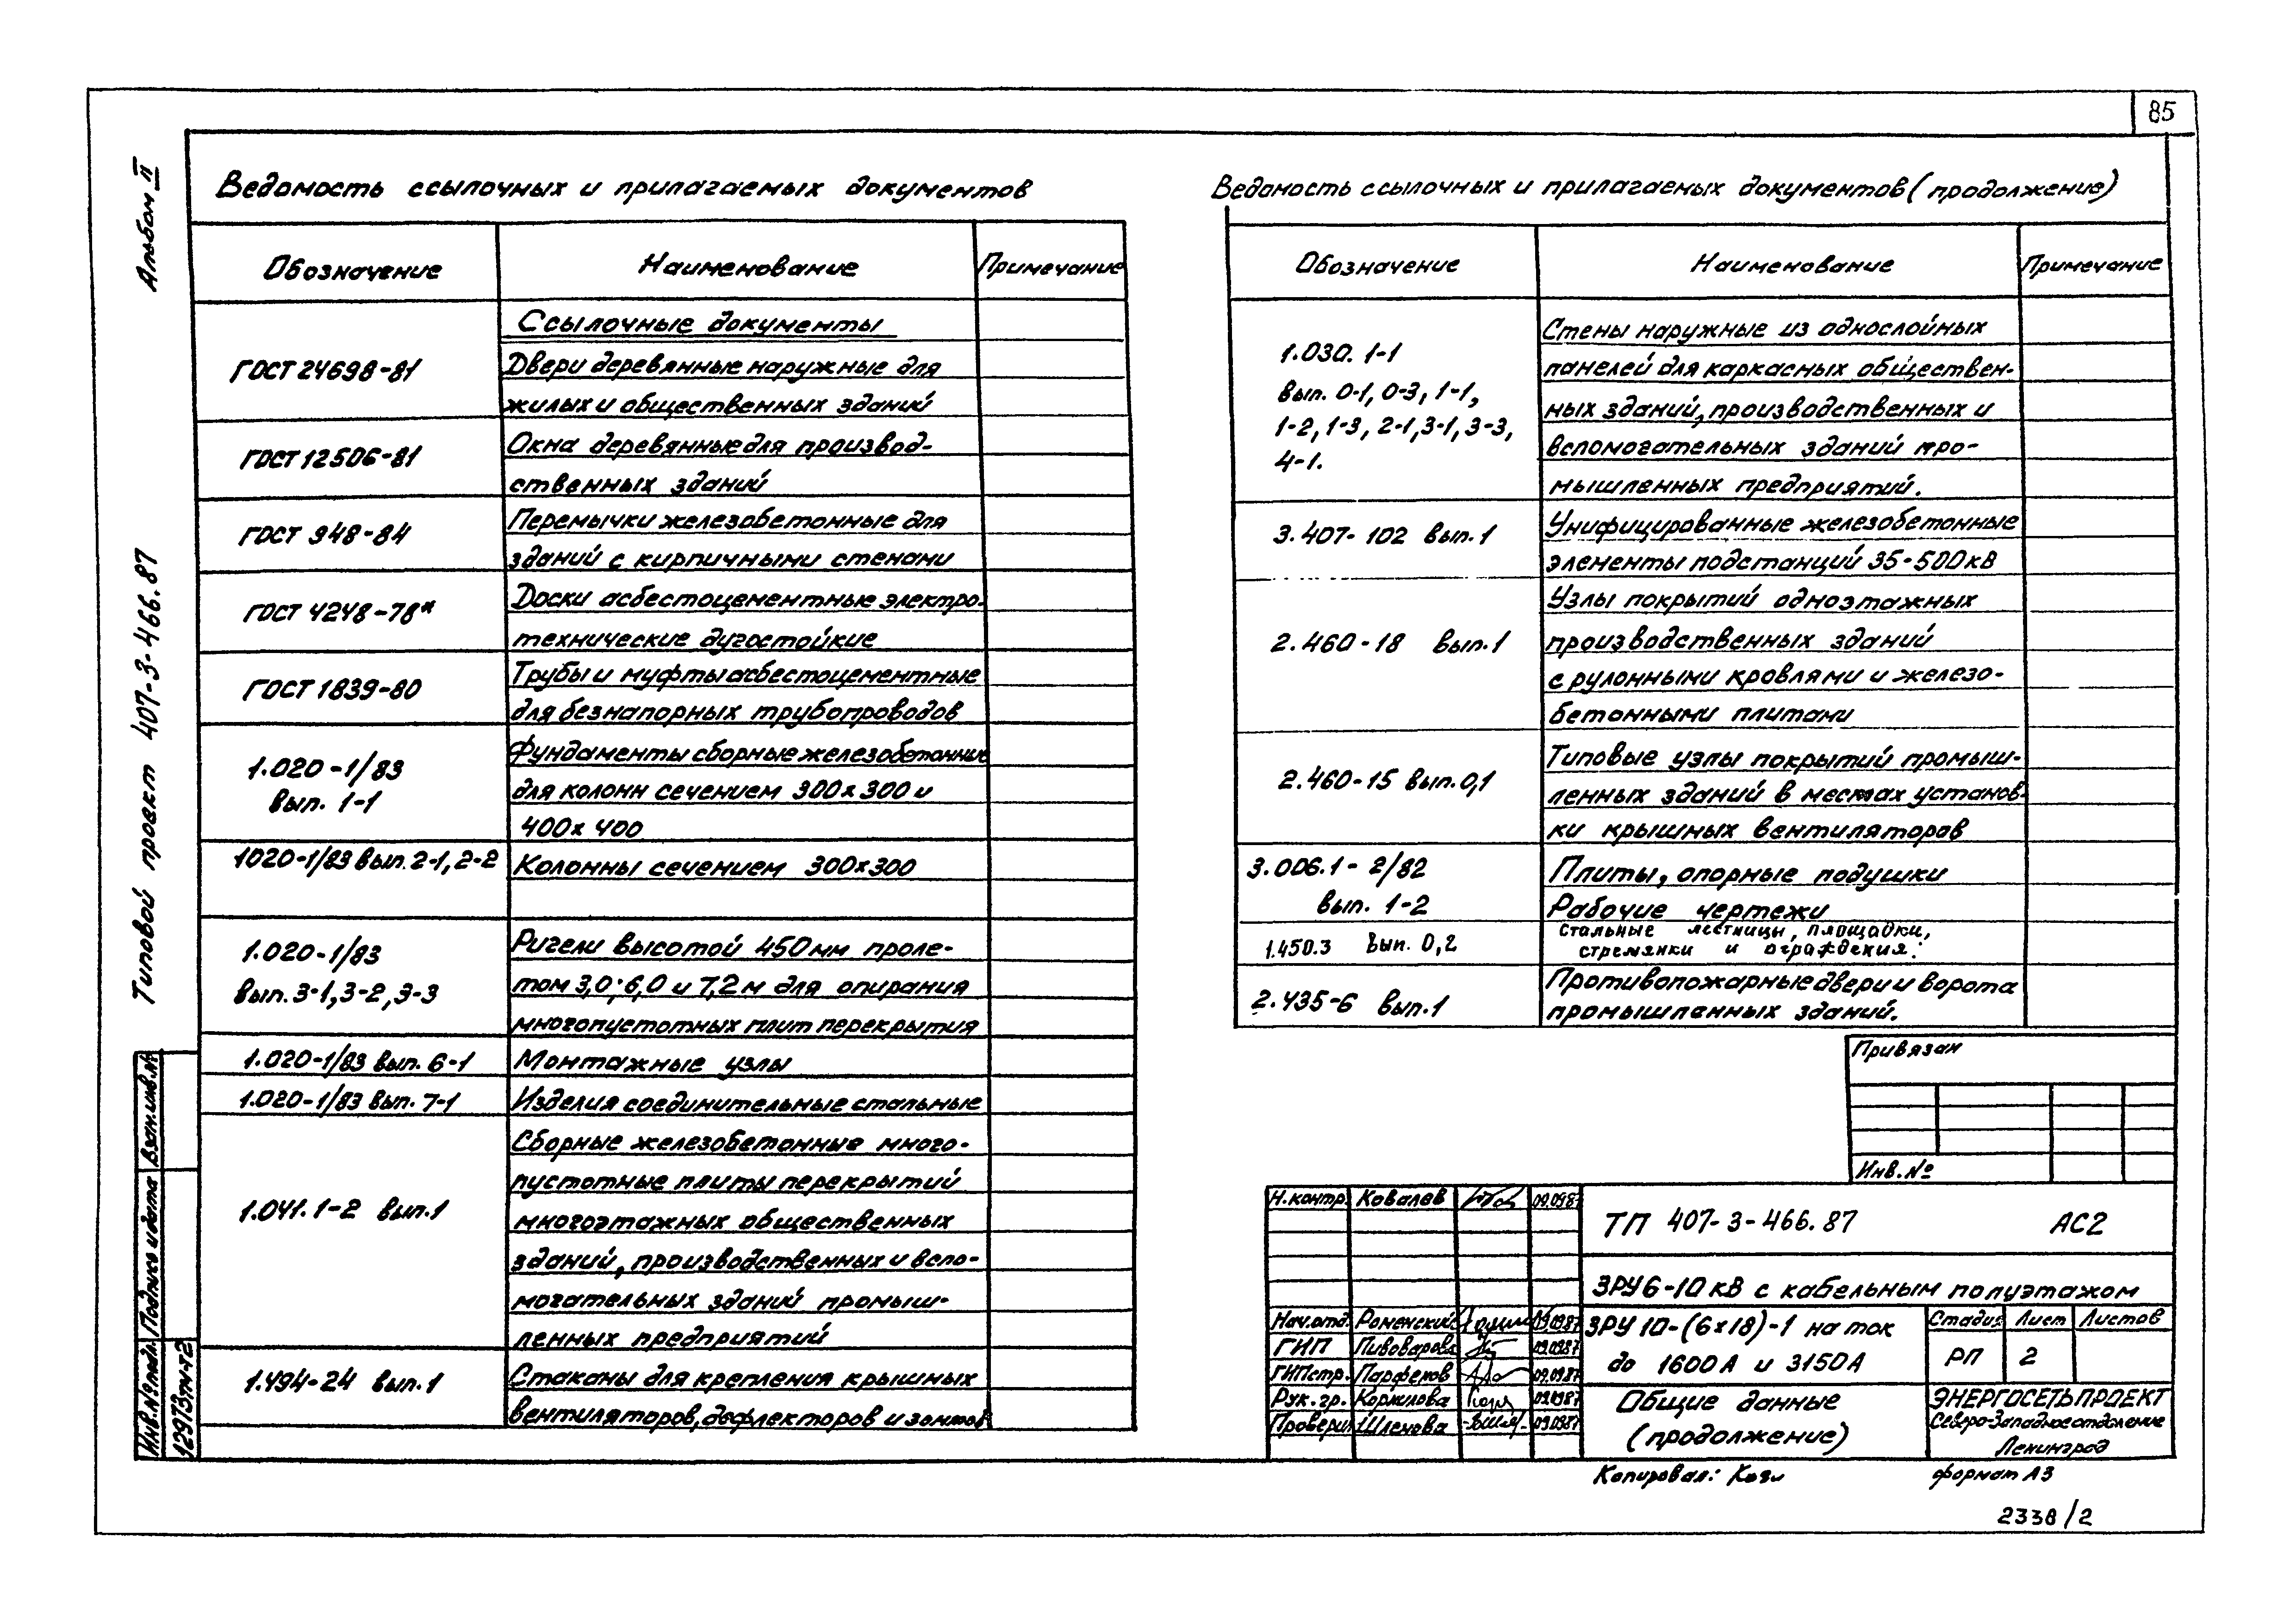 85
Альбом II
Типовой проект 407-3-466.87
Ведомость ссылочных и прилагаемых документов
Обозначение Наименование Примечание
Ссылочные документы
ГОСТ 24698-81 Двери деревянные наружные для
жилых и общественных зданий
ГОСТ 12506-81 Окна деревянные для производ-
ственных зданий
ГОСТ 948-84 Перемычки железобетонные для
зданий с кирпичными стенами
ГОСТ 4248-78* Доски асбестоцементные электро-
технические дугостойкие
ГОСТ 1839-80 Трубы и муфты асбестоцементные
для безнапорных трубопроводов
1.020-1/83 Фундаменты сборные железобетонные
вып. 1-1 для колонн сечением 300х300 и
400х400
1020-1/83 вып. 2-1, 2-2 Колонны сечением 300х300
1.020-1/83 Ригели высотой 450мм проле-
вып. 3-1, 3-2, 3-3 том 3,0; 6,0 и 7,2м для опирания
многопустотных плит перекрытия
1.020-1/83 вып. 6-1 Монтажные узлы
1.020-1/83 вып. 7-1 Изделия соединительные стальные
1.041.1-2 вып.1 Сборные железобетонные много-
пустотные плиты перекрытий
многоэтажных общественных
зданий, производственных и вспо-
могательных зданий промыш-
ленных предприятий
1.494-24 вып.1 Стаканы для крепления крышных
вентиляторов, дефлекторов и зонтов
Ведомость ссылочных и прилагаемых документов (продолжение)
Обозначение Наименование Примечание
1.030.1-1 Стены наружные из однослойных
вып. 0-1, 0-3, 1-1, панелей для каркасных обществен-
1-2, 1-3, 2-1, 3-1, 3-3, ных зданий, производственных и
4-1. вспомогательных зданий про-
мышленных предприятий.
3.407-102 вып.1 Унифицированные железобетонные
элементы подстанций 35-500кВ
2.460-18 вып.1 Узлы покрытий одноэтажных
производственных зданий
с рулонными кровлями и железо-
бетонными плитами
2.460-15 вып.0,1 Типовые узлы покрытий промыш-
ленных зданий в местах установ-
ки крышных вентиляторов
3.006.1-2/82 Плиты, опорные подушки
вып. 1-2 Рабочие чертежи
1.450.3 вып. 0,2 Стальные лестницы, площадки,
стремянки и ограждения.
2.435-6 вып.1 Противопожарные двери и ворота
промышленных зданий.
Привязан
Инв.№
Н.контр. Ковалев 09.0987
ТП 407-3-466.87 АС2
ЗРУ 6-10 кВ с кабельным полуэтажом
Нач.отд. Роменский 09.0987
ГИП Пивоварова 09.0987
ГИПстр. Парфенов 09.0987
Рук.гр. Корнилова 09.0987
Проверил Шленова 09.0987
ЗРУ 10-(6х18)-1 на ток
до 1600А и 3150А
Стадия Лист Листов
РП 2
Общие данные
(продолжение)
ЭНЕРГОСЕТЬПРОЕКТ
Северо-Западное отделение
Ленинград
Копировал: формат А3
2338/2
Взам.инв.№
Подпись и дата
Инв.№ подл.
12973тм-т2